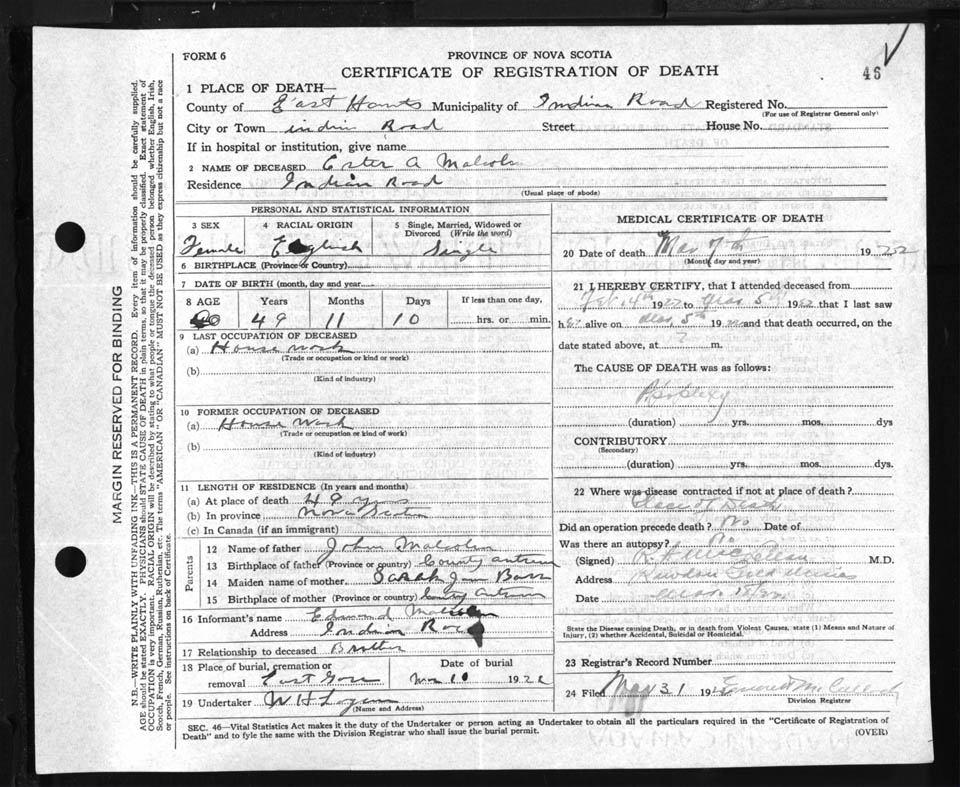 FORM 6
PROVINCE OF NOVA SCOTIA
CERTIFICATE OF REGISTRATION OF DEATH
46
1 PLACE OF DEATH—
County of East Hants Municipality of Indian Road Registered No.
(For use of Registrar General only)
City or Town indin Road Street House No.
If in hospital or institution, give name
2 NAME OF DECEASED Ester A Malcolm
Residence Indian Road
(Usual place of abode)
PERSONAL AND STATISTICAL INFORMATION
3 SEX 4 RACIAL ORIGIN 5 Single, Married, Widowed or
Divorced (Write the word)
Female English Single
6 BIRTHPLACE (Province or Country)
7 DATE OF BIRTH (month, day and year)
8 AGE Years Months Days If less than one day,
49 11 10 hrs. or min.
9 LAST OCCUPATION OF DECEASED
(a) House work
(Trade or occupation or kind or work)
(b)
(Kind of industry)
10 FORMER OCCUPATION OF DECEASED
(a) House Work
(Trade or occupation or kind of work)
(b)
(Kind of industry)
11 LENGTH OF RESIDENCE (In years and months)
(a) At place of death 49 years
(b) In province Nova Scotia
(c) In Canada (if an immigrant)
Parents
12 Name of father John Malcolm
13 Birthplace of father (Province or country) County antrim
14 Maiden name of mother Sarah Jane
15 Birthplace of mother (Province or country) County Antrim
16 Informant's name Edmund Malcolm
Address Indian Road
17 Relationship to deceased Brother
18 Place of burial, cremation or Date of burial
removal East Gore Mar 10 1922
19 Undertaker W H Logan
(Name and Address)
MEDICAL CERTIFICATE OF DEATH
20 Date of death Mar 7th 1922
(Month, day and year)
21 I HEREBY CERTIFY, that I attended deceased from
Feb 14th 1922 to Mar 5th 1922 that I last saw
her alive on Mar, 5th 1922 and that death occurred, on the
date stated above, at ? m.
The CAUSE OF DEATH was as follows:
(duration) yrs. mos. dys
CONTRIBUTORY
(Secondary)
(duration) yrs. mos. dys.
22 Where was disease contracted if not at place of death?
Place of Death
Did an operation precede death? No Date of
Was there an autopsy? No
(Signed) M.D.
Address Rawdon Gold Mines
Date Mar.
State the Disease causing Death, or in death from Violent Causes, state (1) Means and Nature of
Injury, (2) whether Accidental, Suicidal or Homicidal.
23 Registrar's Record Number
24 Filed 31 19
Division Registrar
SEC. 46—Vital Statistics Act makes it the duty of the Undertaker or person acting as Undertaker to obtain all the particulars required in the "Certificate of Registration of
Death" and to fyle the same with the Division Registrar who shall issue the burial permit.
(OVER)
MARGIN RESERVED FOR BINDING
N.B.—WRITE PLAINLY WITH UNFADING INK—THIS IS A PERMANENT RECORD. Every item of information should be carefully supplied.
AGE should be stated EXACTLY. PHYSICIANS should STATE CAUSE OF DEATH in plain terms, so that it may be properly classified. Exact statement of
OCCUPATION is very important. RACIAL ORIGIN will be described by stating to what people or tongue the deceased person belonged whether English, Irish,
Scotch, French, German, Russian, Ruthenian, etc. The terms "AMERICAN" OR "CANADIAN" MUST NOT BE USED as they express citizenship but not a race
or people. See instructions on back of Certificate.